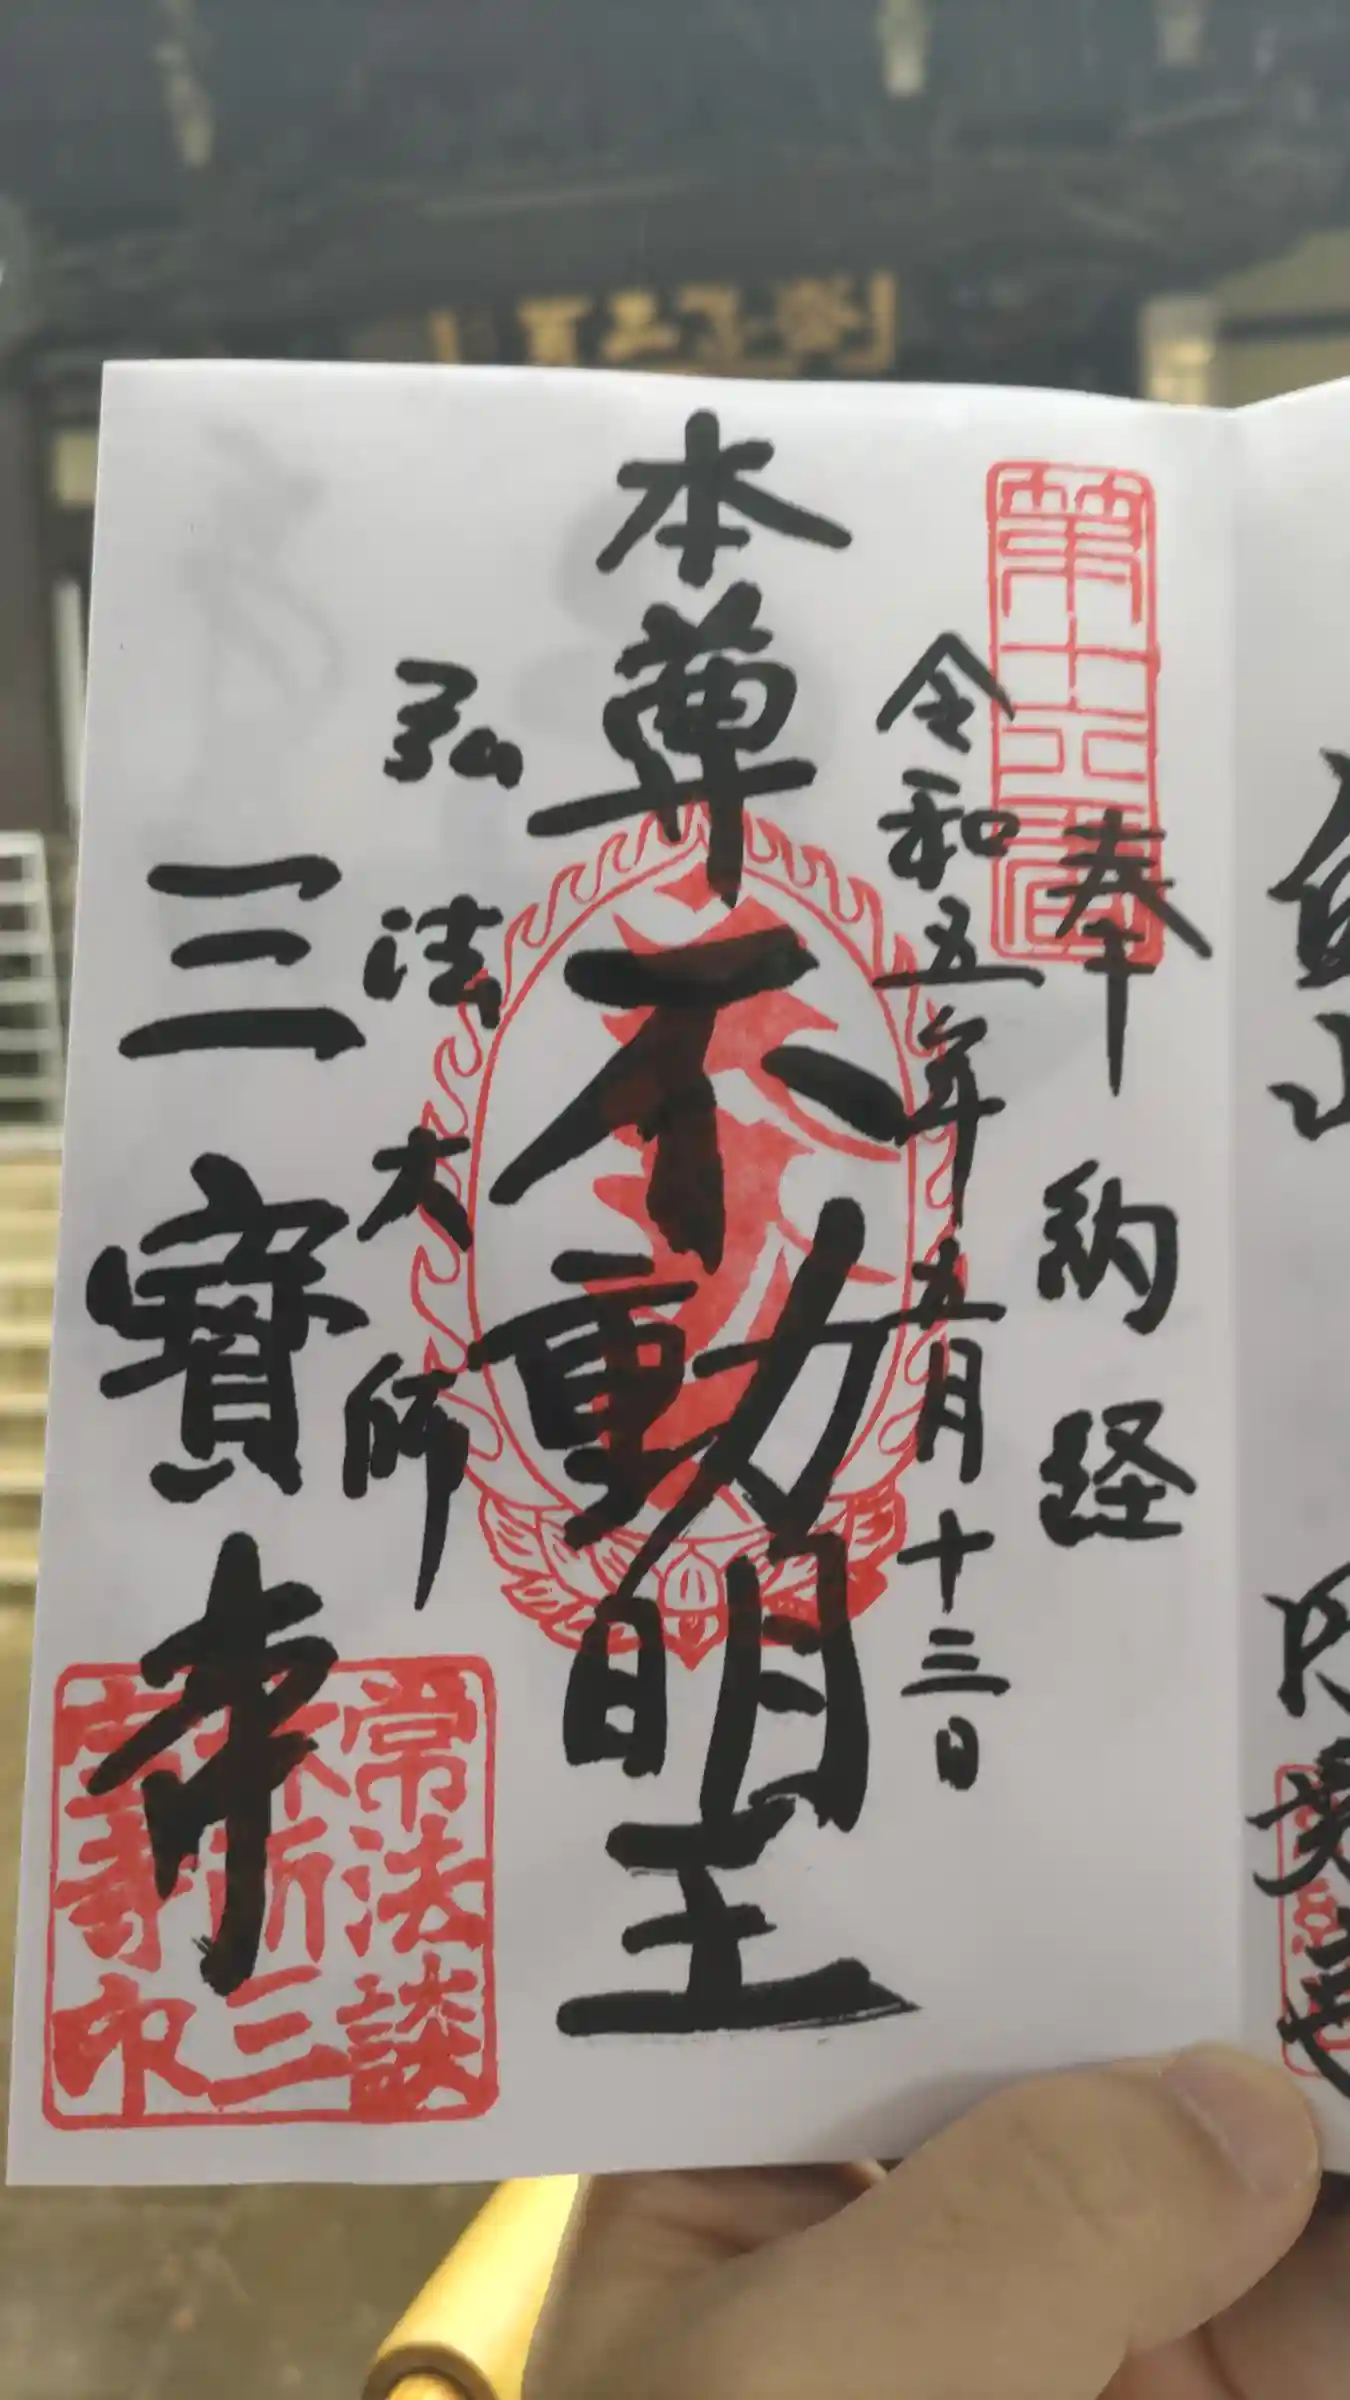 奉納経
令和五年五月十三日
本尊不動明王
弘法大師
三寳寺
常法談
林所三
宝寺印